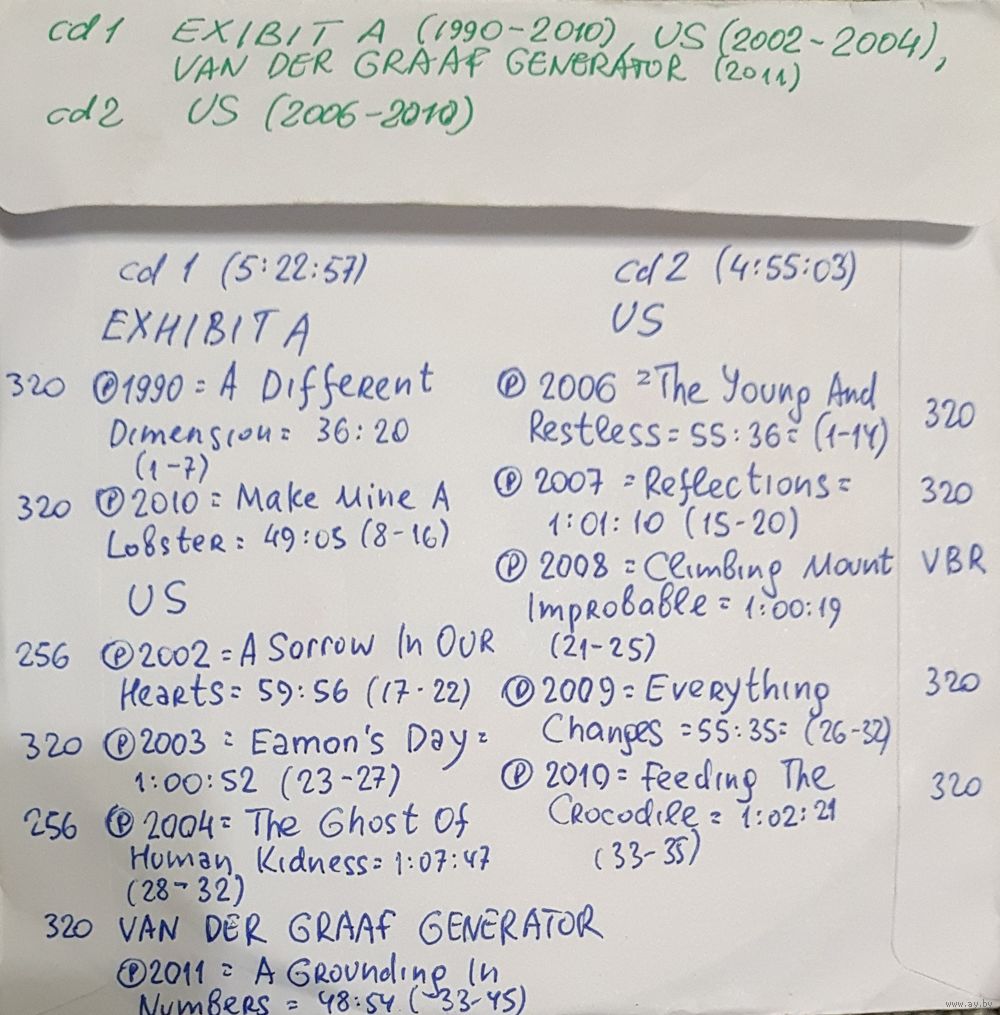 cd1 EXIBIT A (1990-2010), US (2002-2004),
VAN DER GRAAF GENERATOR (2011)
cd2 US (2006-2010)
cd 1 (5:22:57)
EXHIBIT A
320 Ⓟ1990 = A Different
Dimension = 36:20
(1-7)
320 Ⓟ2010 = Make Mine A
Lobster = 49:05 (8-16)
US
256 Ⓟ2002 = A Sorrow In Our
Hearts = 59:56 (17-22)
320 Ⓟ2003 = Eamon's Day =
1:00:52 (23-27)
256 Ⓟ2004 = The Ghost Of
Human Kidness = 1:07:47
(28-32)
320 VAN DER GRAAF GENERATOR
Ⓟ2011 = A Grounding In
Numbers = 48:54 (33-45)
cd2 (4:55:03)
US
Ⓟ 2006 = The Young And
Restless = 55:36 = (1-14) 320
Ⓟ 2007 = Reflections = 320
1:01:10 (15-20)
Ⓟ 2008 = Climbing Mount VBR
Improbable = 1:00:19
(21-25)
Ⓟ 2009 = Everything 320
Changes = 55:35 = (26-32)
Ⓟ 2010 = Feeding The 320
Crocodile = 1:02:21
(33-35)
www.av.by